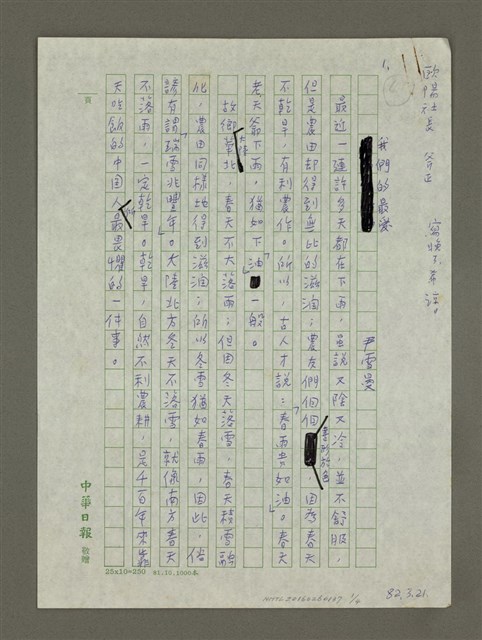 歐陽社長 斧正
1.
我們的最愛
尹雪曼
最近一連許多天都在下雨，虽說又陰又冷，並不舒服，
但是農田却得到無比的滋润；農友們個個喜形於色，因為春天
不乾旱，有利農作。所以，古人才說：「春雨貴如油」。春天
老天爺下雨，猶如下「油」一般。
故鄉大陸華北，春天不大落雨；但因冬天落雪，春天積雪融
化，農田同樣地得到滋润；所以冬雪猶如春雨，因此，俗
諺有謂「瑞雪兆豐年」。大陸北方冬天不落雪，就像南方春天
不落雨，一定乾旱。乾旱，自然不利農耕，是千百年來靠
天吃飯的中国人所最畏懼的一件事。
頁
中華日報 敬贈
25x10=250 81.10.1000本
1/4
82.3.21.